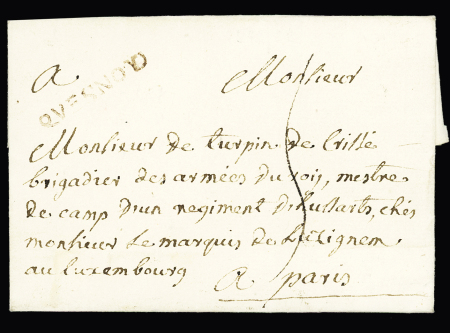 A Monsieur
QUESNOY
Monsieur de turpin de Crissé
brigadier des armées du rois, mestre
de camp d'un regiment D'hussarts, chés
monsieur Le marquis de Luzignem
au luxembourg
A paris